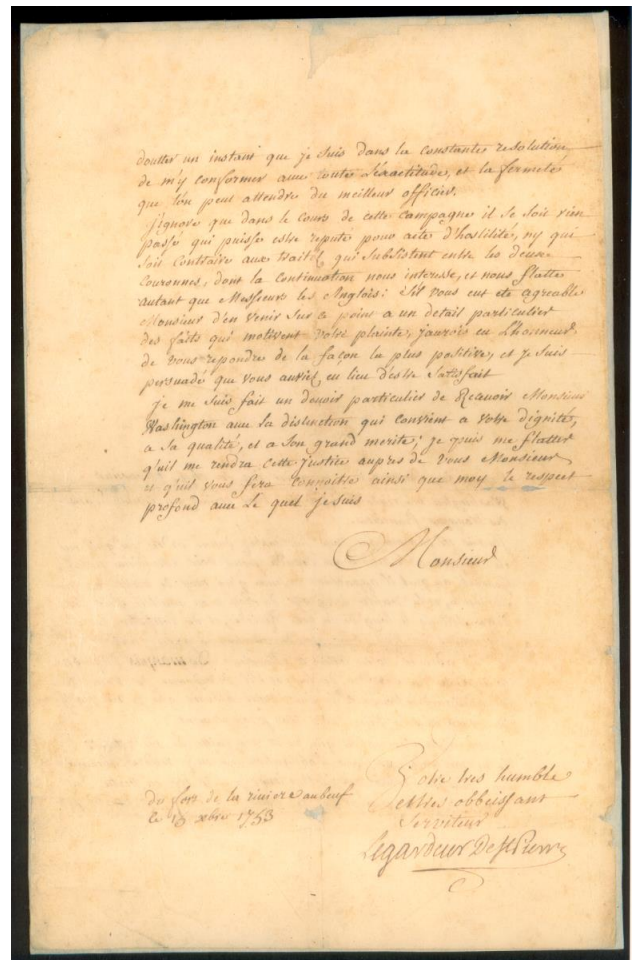 doutter un instant que je suis dans la constante resolution
de m'y conformer avec toutes l'exactitude, et la fermeté
que l'on peut attendre du meilleur officier.
j'ignore que dans le cours de cette campagne il se soit rien
passé qui puisse estre reputé pour acte d'hostilité, ny qui
soit contraire aux traitéz qui subsistent entre les deux
couronnes, dont la continuation nous interesse, et nous flatte
autant que Messieurs les Anglois: s'il vous eut eté agreable
Monsieur d'en venir sur ce point a un detail particulier
des faits qui motivent votre plainte, j'aurois eu L'honneur
de vous repondre de la façon la plus positive, et je suis
persuadé que vous auriéz eu lieu d'estre satisfait
je me suis fait un devoir particulier de Recevoir Monsieur
Washington avec la distinction qui convient a votre dignité,
a sa qualité, et a son grand merite; je puis me flatter
qu'il me rendra cette justice aupres de vous Monsieur
et qu'il vous fera connoitre ainsi que moy le respect
profond avec le quel je suis
Monsieur
Votre tres humble
du fort de la riviere au beuf
et tres obbeissant
le 15 xbre 1753
serviteur
Legardeur De St Pierre